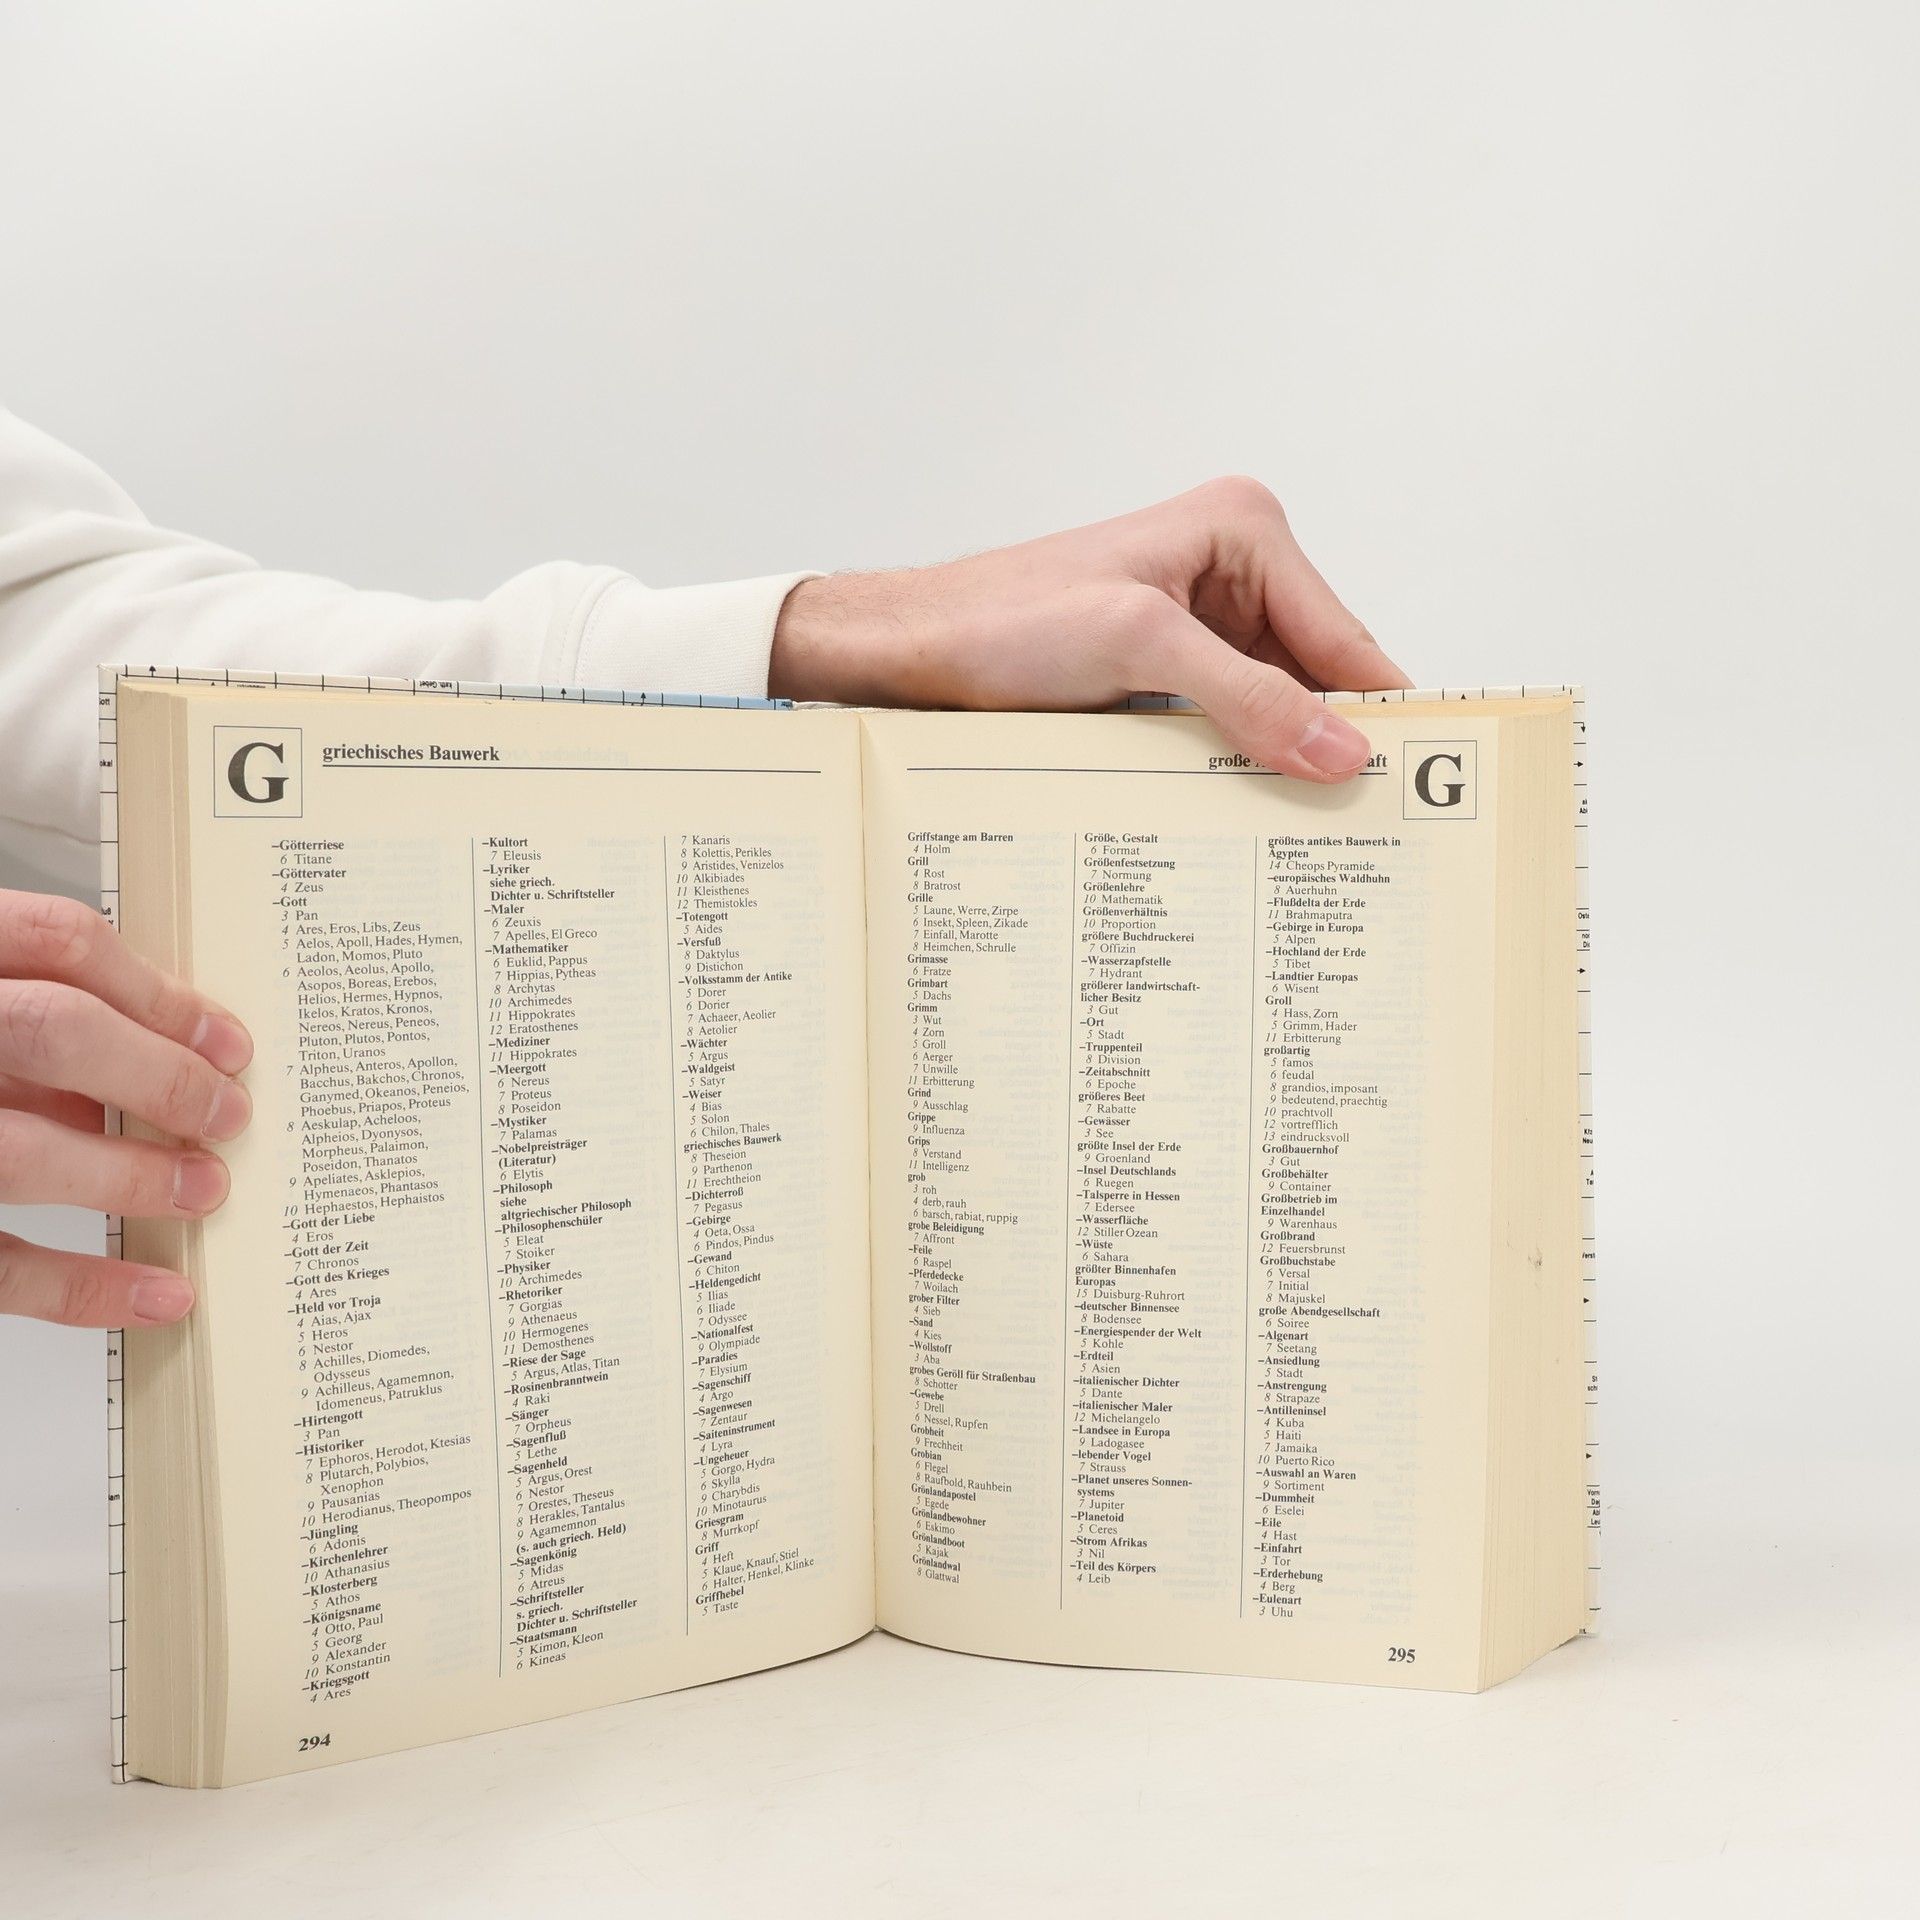 G
griechisches Bauwerk
–Götterriese
6 Titane
–Göttervater
4 Zeus
–Gott
3 Pan
4 Ares, Eros, Libs, Zeus
5 Aelos, Apoll, Hades, Hymen,
Ladon, Momos, Pluto
6 Aeolos, Aeolus, Apollo,
Asopos, Boreas, Erebos,
Helios, Hermes, Hypnos,
Ikelos, Kratos, Kronos,
Nereos, Nereus, Peneos,
Pluton, Plutos, Pontos,
Triton, Uranos
7 Alpheus, Anteros, Apollon,
Bacchus, Bakchos, Chronos,
Ganymed, Okeanos, Peneios,
Phoebus, Priapos, Proteus
8 Aeskulap, Acheloos,
Alpheios, Dyonysos,
Morpheus, Palaimon,
Poseidon, Thanatos
9 Apeliates, Asklepios,
Hymenaeos, Phantasos
10 Hephaestos, Hephaistos
–Gott der Liebe
4 Eros
–Gott der Zeit
7 Chronos
–Gott des Krieges
4 Ares
–Held vor Troja
4 Aias, Ajax
5 Heros
6 Nestor
8 Achilles, Diomedes,
Odysseus
9 Achilleus, Agamemnon,
Idomeneus, Patruklus
–Hirtengott
3 Pan
–Historiker
7 Ephoros, Herodot, Ktesias
8 Plutarch, Polybios,
Xenophon
9 Pausanias
10 Herodianus, Theopompos
–Jüngling
6 Adonis
–Kirchenlehrer
10 Athanasius
–Klosterberg
5 Athos
–Königsname
4 Otto, Paul
5 Georg
9 Alexander
10 Konstantin
–Kriegsgott
4 Ares
–Kultort
7 Eleusis
–Lyriker
siehe griech.
Dichter u. Schriftsteller
–Maler
6 Zeuxis
7 Apelles, El Greco
–Mathematiker
6 Euklid, Pappus
7 Hippias, Pytheas
8 Archytas
10 Archimedes
11 Hippokrates
12 Eratosthenes
–Mediziner
11 Hippokrates
–Meergott
6 Nereus
7 Proteus
8 Poseidon
–Mystiker
7 Palamas
–Nobelpreisträger
(Literatur)
6 Elytis
–Philosoph
siehe
altgriechischer Philosoph
–Philosophenschüler
5 Eleat
7 Stoiker
–Physiker
10 Archimedes
–Rhetoriker
7 Gorgias
9 Athenaeus
10 Hermogenes
11 Demosthenes
–Riese der Sage
5 Argus, Atlas, Titan
–Rosinenbranntwein
4 Raki
–Sänger
7 Orpheus
–Sagenfluß
5 Lethe
–Sagenheld
5 Argus, Orest
6 Nestor
7 Orestes, Theseus
8 Herakles, Tantalus
9 Agamemnon
(s. auch griech. Held)
–Sagenkönig
5 Midas
6 Atreus
–Schriftsteller
s. griech.
Dichter u. Schriftsteller
–Staatsmann
5 Kimon, Kleon
6 Kineas
7 Kanaris
8 Kolettis, Perikles
9 Aristides, Venizelos
10 Alkibiades
11 Kleisthenes
12 Themistokles
–Totengott
5 Aides
–Versfuß
8 Daktylus
9 Distichon
–Volksstamm der Antike
5 Dorer
6 Dorier
7 Achaeer, Aeolier
8 Aetolier
–Wächter
5 Argus
–Waldgeist
5 Satyr
–Weiser
4 Bias
5 Solon
6 Chilon, Thales
griechisches Bauwerk
8 Theseion
9 Parthenon
11 Erechtheion
–Dichterroß
7 Pegasus
–Gebirge
4 Oeta, Ossa
6 Pindos, Pindus
–Gewand
6 Chiton
–Heldengedicht
5 Ilias
6 Iliade
7 Odyssee
–Nationalfest
9 Olympiade
–Paradies
7 Elysium
–Sagenschiff
4 Argo
–Sagenwesen
7 Zentaur
–Saiteninstrument
4 Lyra
–Ungeheuer
5 Gorgo, Hydra
6 Skylla
9 Charybdis
10 Minotaurus
Griesgram
8 Murrkopf
Griff
4 Heft
5 Klaue, Knauf, Stiel
6 Halter, Henkel, Klinke
Griffhebel
5 Taste
294
große
aft
G
Griffstange am Barren
4 Holm
Grill
4 Rost
8 Bratrost
Grille
5 Laune, Werre, Zirpe
6 Insekt, Spleen, Zikade
7 Einfall, Marotte
8 Heimchen, Schrulle
Grimasse
6 Fratze
Grimbart
5 Dachs
Grimm
3 Wut
4 Zorn
5 Groll
6 Aerger
7 Unwille
11 Erbitterung
Grind
9 Ausschlag
Grippe
9 Influenza
Grips
8 Verstand
11 Intelligenz
grob
3 roh
4 derb, rauh
6 barsch, rabiat, ruppig
grobe Beleidigung
7 Affront
–Feile
6 Raspel
–Pferdedecke
7 Woilach
grober Filter
4 Sieb
–Sand
4 Kies
–Wollstoff
3 Aba
grobes Geröll für Straßenbau
8 Schotter
–Gewebe
5 Drell
6 Nessel, Rupfen
Grobheit
9 Frechheit
Grobian
6 Flegel
8 Raufbold, Rauhbein
Grönlandapostel
5 Egede
Grönlandbewohner
6 Eskimo
Grönlandboot
5 Kajak
Grönlandwal
8 Glattwal
Größe, Gestalt
6 Format
Größenfestsetzung
7 Normung
Größenlehre
10 Mathematik
Größenverhältnis
10 Proportion
größere Buchdruckerei
7 Offizin
–Wasserzapfstelle
7 Hydrant
größerer landwirtschaft-
licher Besitz
3 Gut
–Ort
5 Stadt
–Truppenteil
8 Division
–Zeitabschnitt
6 Epoche
größeres Beet
7 Rabatte
–Gewässer
3 See
größte Insel der Erde
9 Groenland
–Insel Deutschlands
6 Ruegen
–Talsperre in Hessen
7 Edersee
–Wasserfläche
12 Stiller Ozean
–Wüste
6 Sahara
größter Binnenhafen
Europas
15 Duisburg-Ruhrort
–deutscher Binnensee
8 Bodensee
–Energiespender der Welt
5 Kohle
–Erdteil
5 Asien
–italienischer Dichter
5 Dante
–italienischer Maler
12 Michelangelo
–Landsee in Europa
9 Ladogasee
–lebender Vogel
7 Strauss
–Planet unseres Sonnen-
systems
7 Jupiter
–Planetoid
5 Ceres
–Strom Afrikas
3 Nil
–Teil des Körpers
4 Leib
größtes antikes Bauwerk in
Ägypten
14 Cheops Pyramide
–europäisches Waldhuhn
8 Auerhuhn
–Flußdelta der Erde
11 Brahmaputra
–Gebirge in Europa
5 Alpen
–Hochland der Erde
5 Tibet
–Landtier Europas
6 Wisent
Groll
4 Hass, Zorn
5 Grimm, Hader
11 Erbitterung
großartig
5 famos
6 feudal
8 grandios, imposant
9 bedeutend, praechtig
10 prachtvoll
12 vortrefflich
13 eindrucksvoll
Großbauernhof
3 Gut
Großbehälter
9 Container
Großbetrieb im
Einzelhandel
9 Warenhaus
Großbrand
12 Feuersbrunst
Großbuchstabe
6 Versal
7 Initial
8 Majuskel
große Abendgesellschaft
6 Soiree
–Algenart
7 Seetang
–Ansiedlung
5 Stadt
–Anstrengung
8 Strapaze
–Antilleninsel
4 Kuba
5 Haiti
7 Jamaika
10 Puerto Rico
–Auswahl an Waren
9 Sortiment
–Dummheit
6 Eselei
–Eile
4 Hast
–Einfahrt
3 Tor
–Erderhebung
4 Berg
–Eulenart
3 Uhu
295